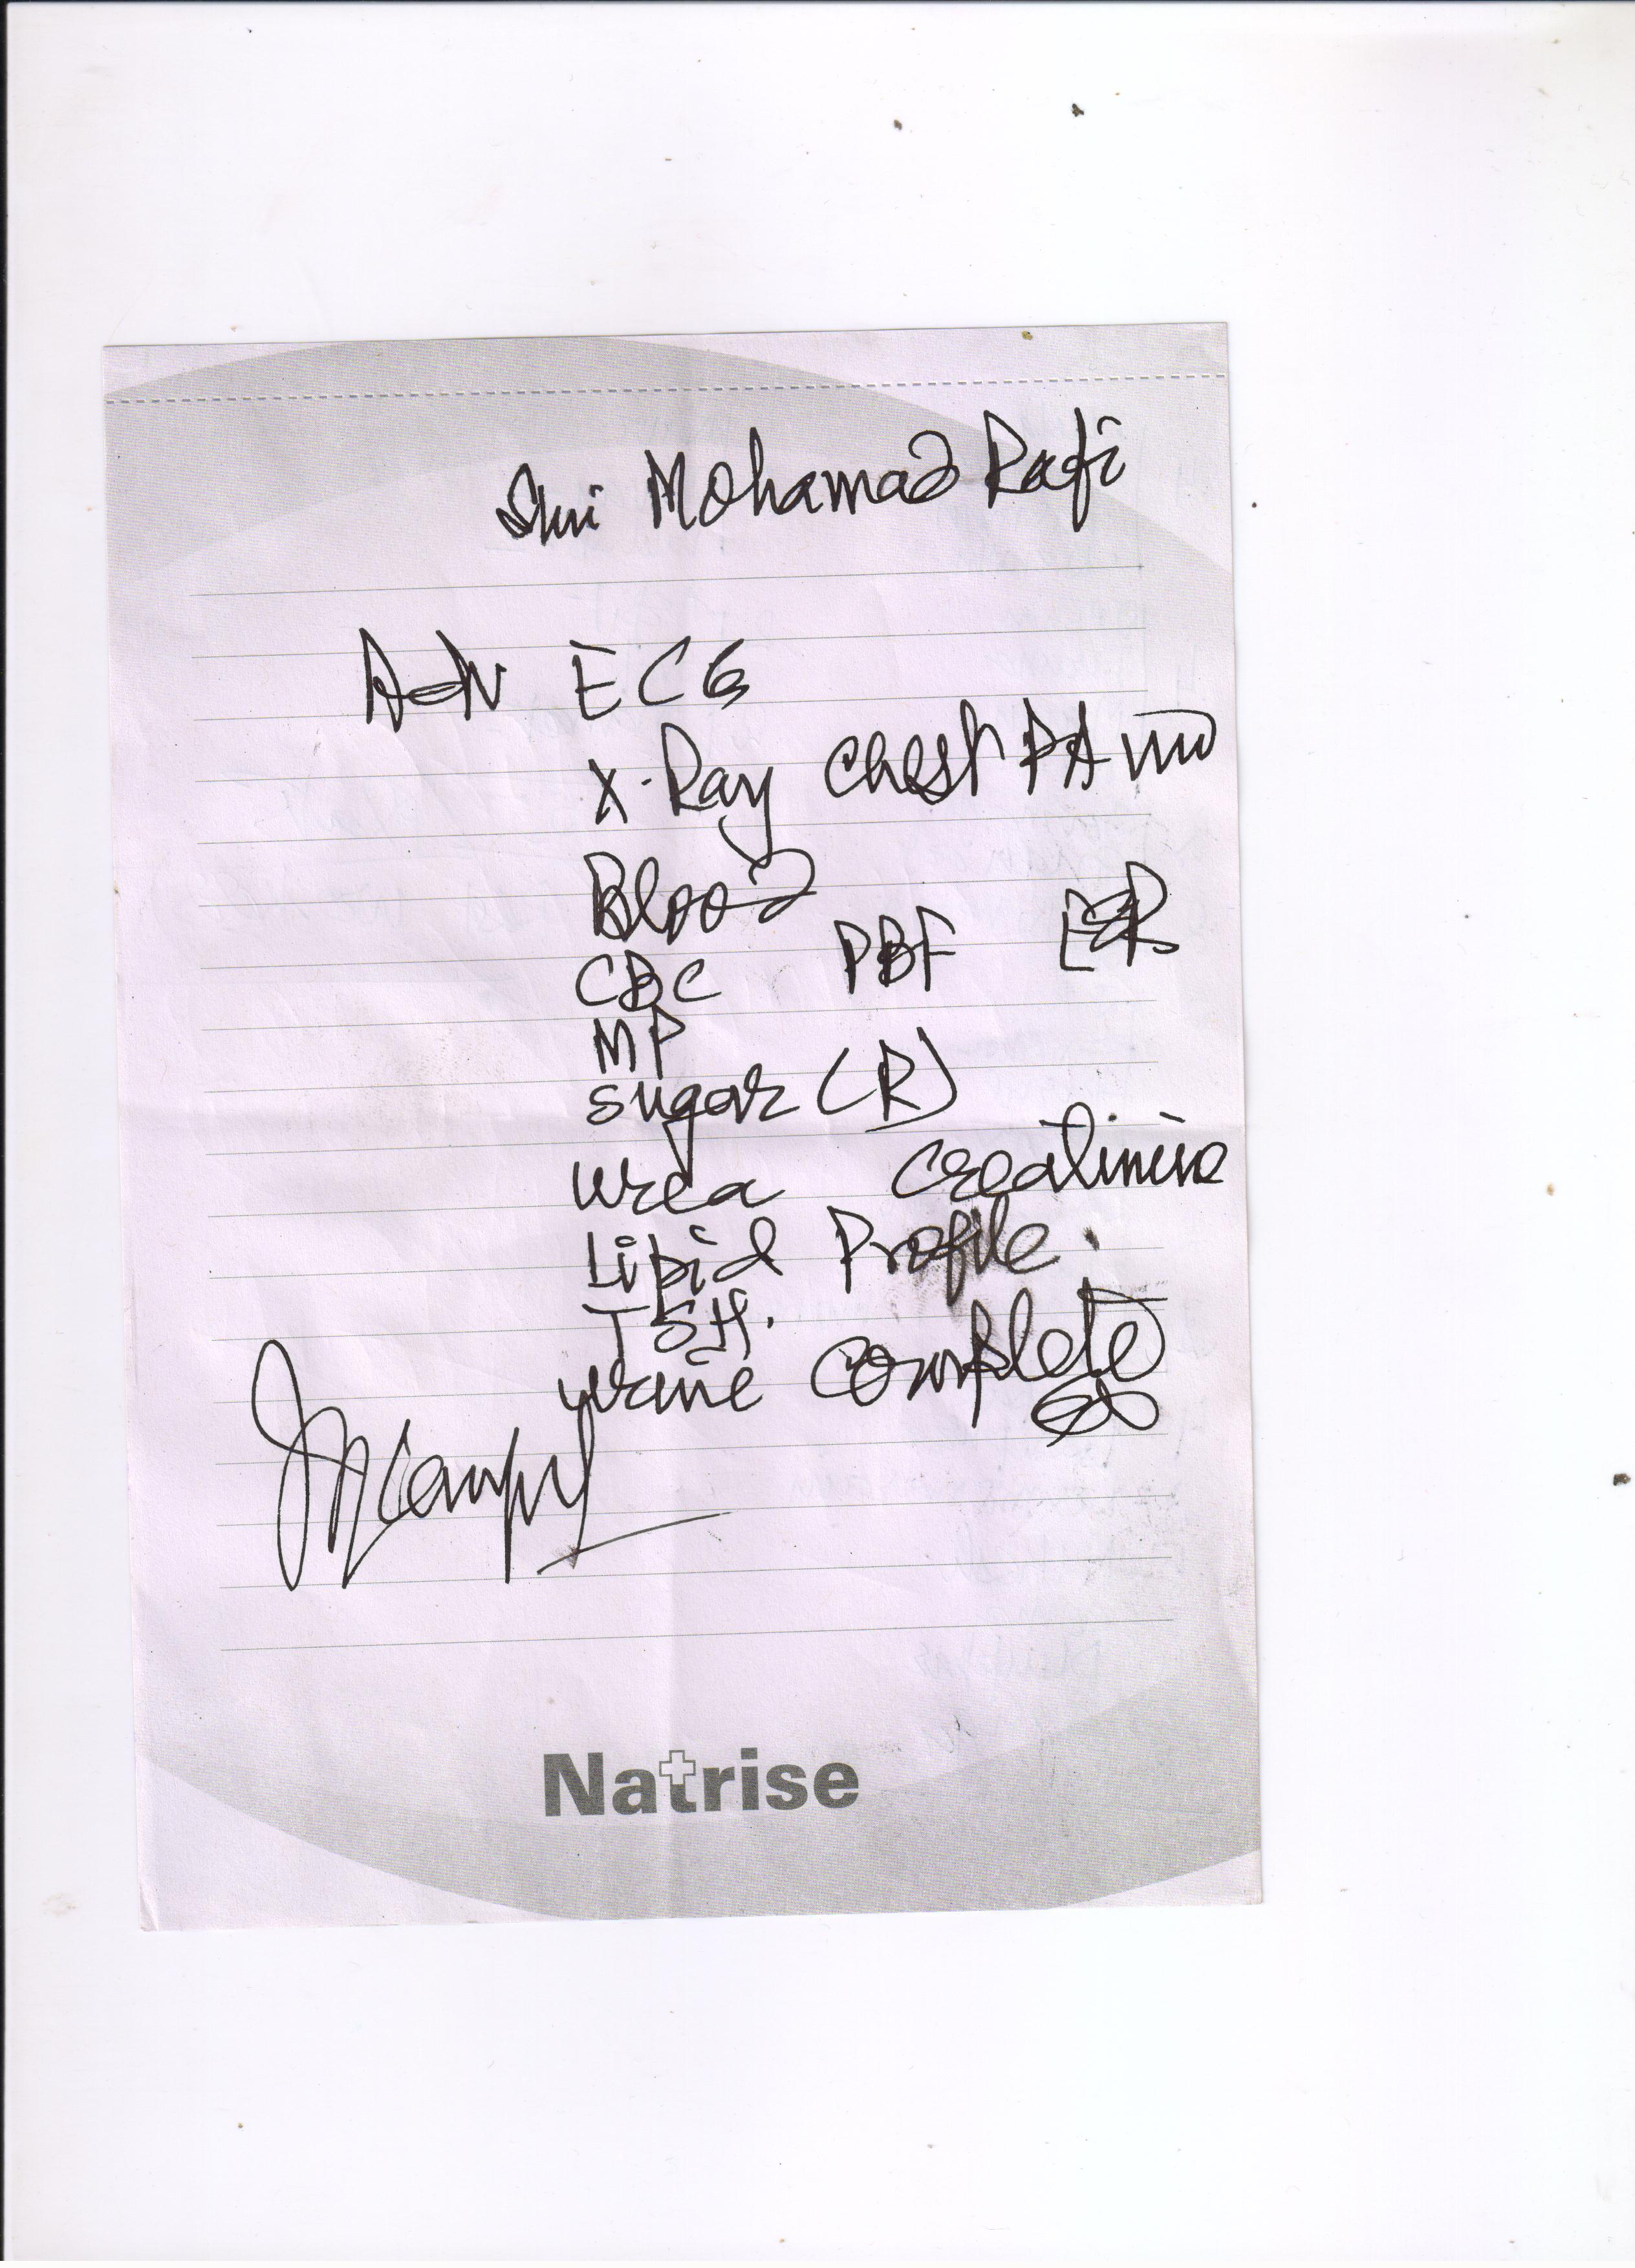 Shri Mohamad Rafi
Adv ECG
X-Ray Chest PA
Blood
CBC PBF ESR
MP
Sugar (R)
Urea Creatinine
Lipid Profile.
TSH.
Urine Complete
Natrise